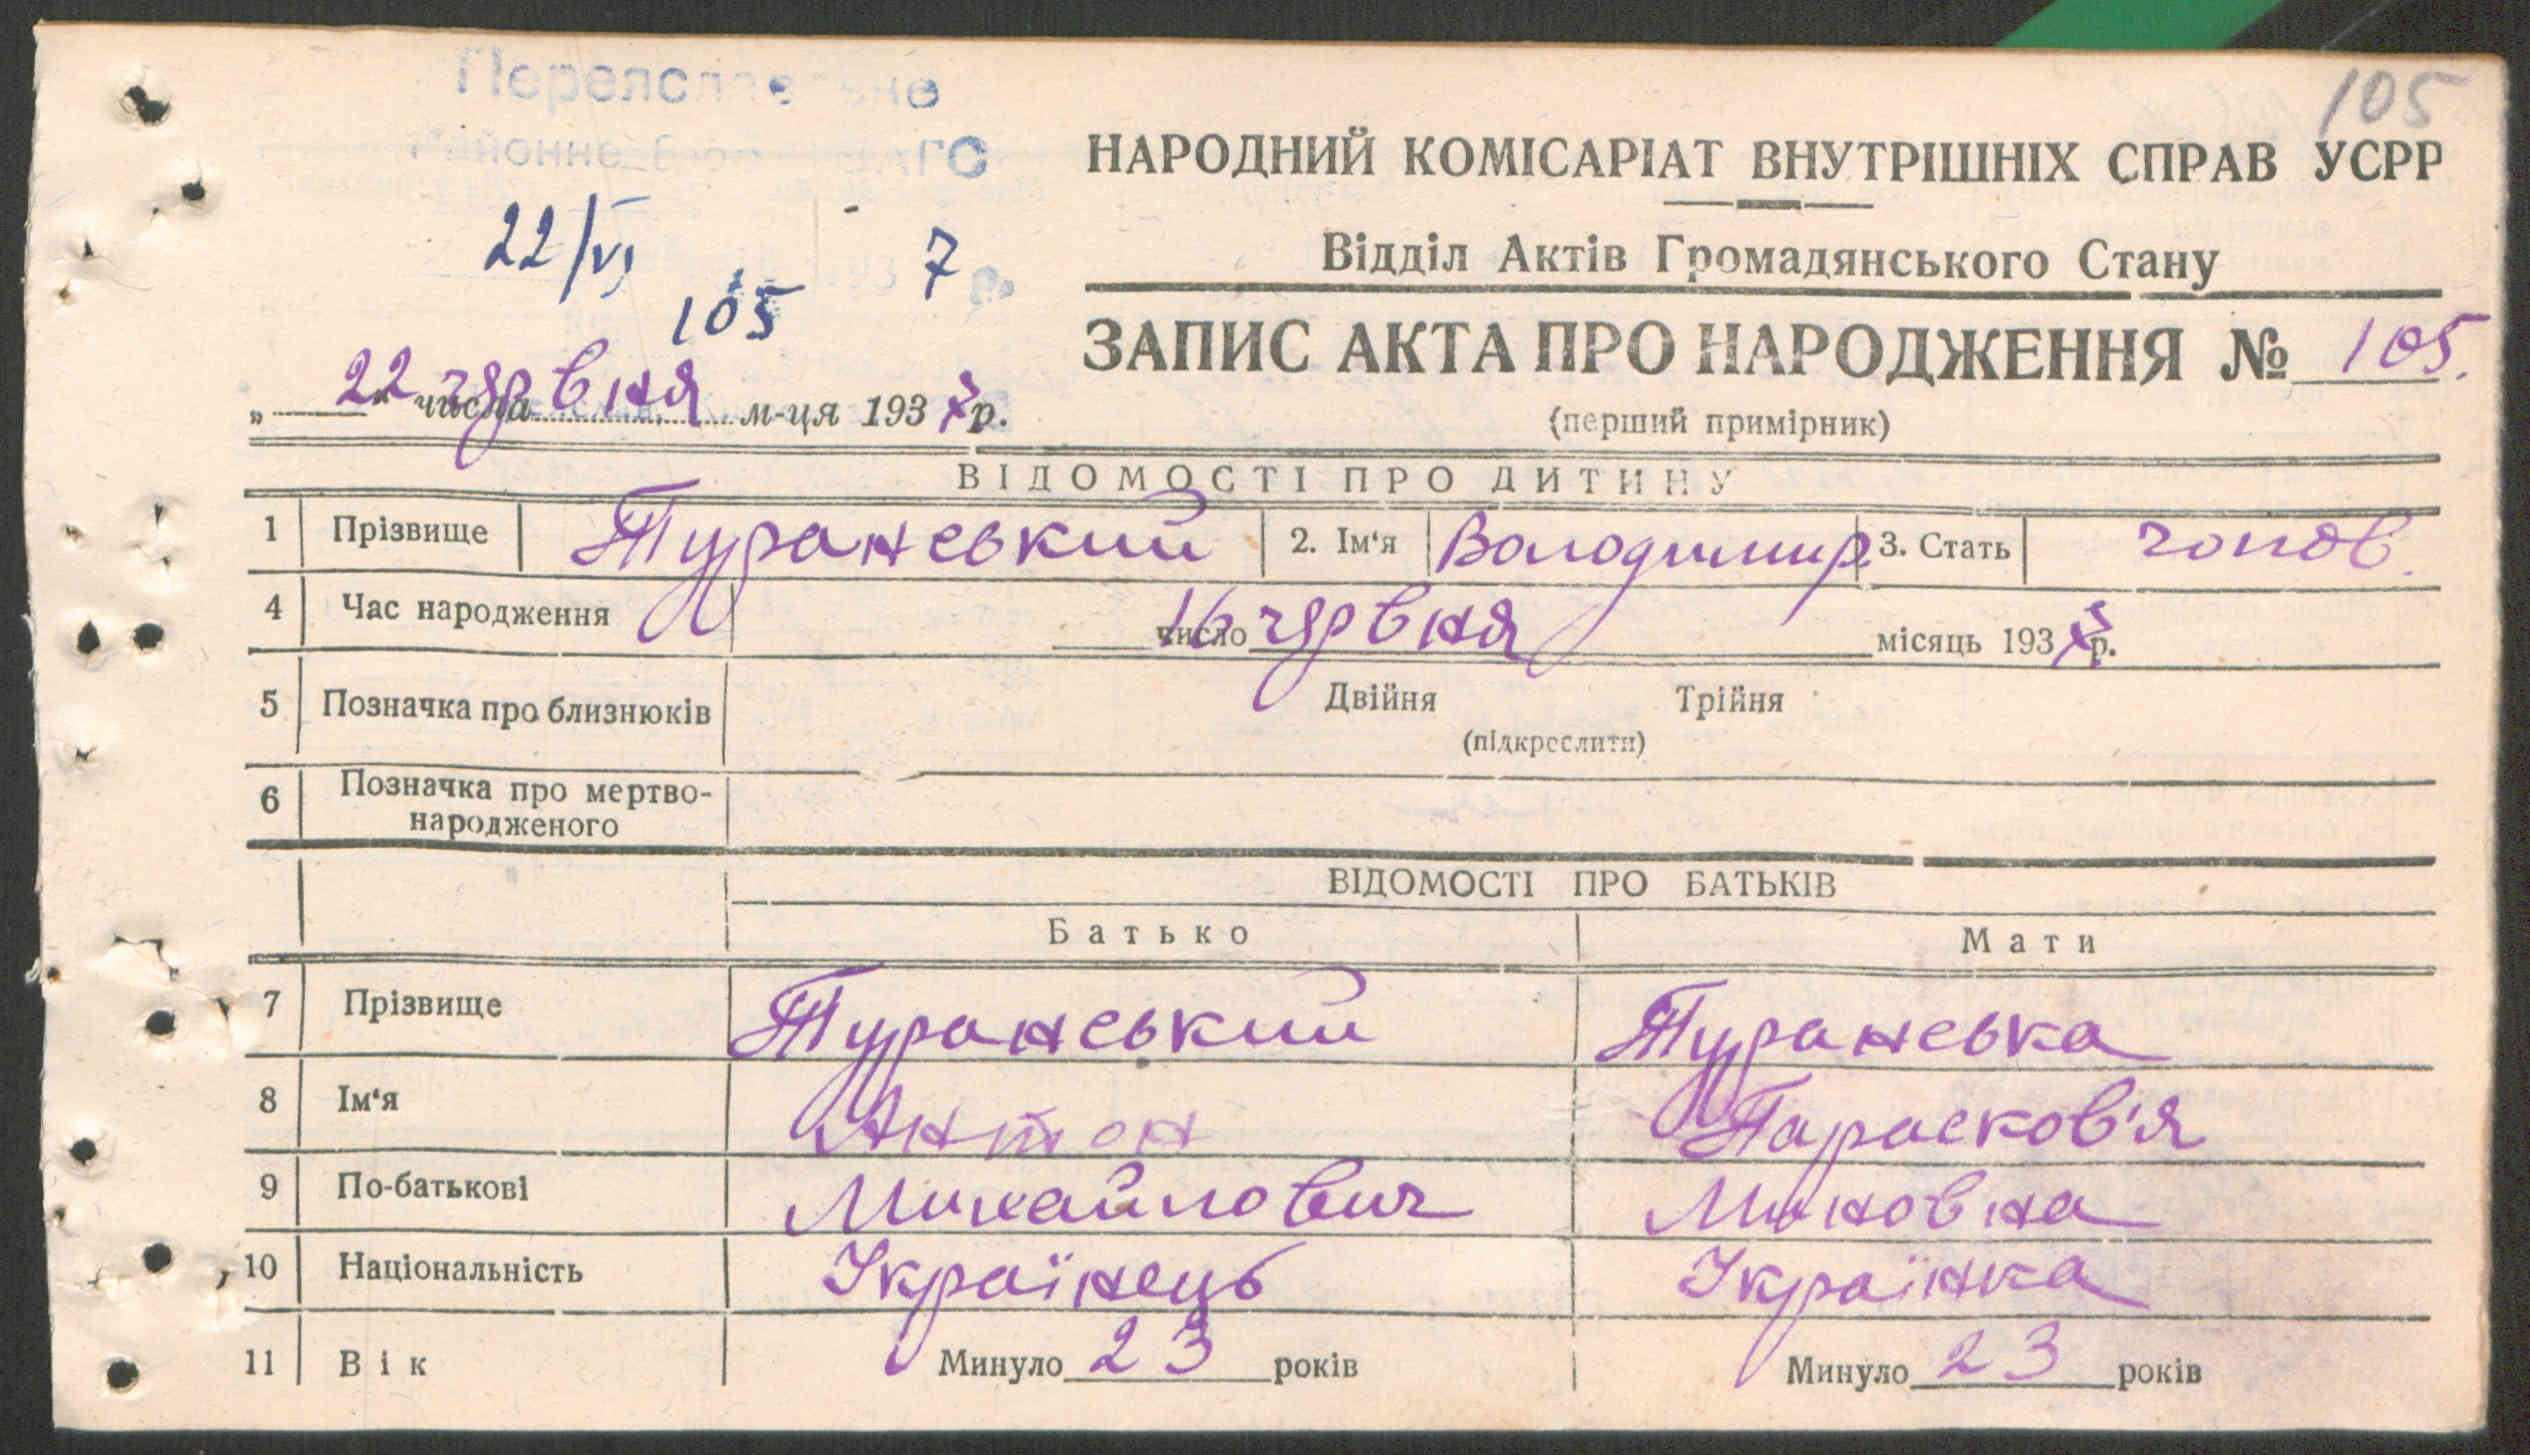 105
Районне ЗАГС
НАРОДНИЙ КОМІСАРІАТ ВНУТРІШНІХ СПРАВ УСРР
22/VI 7
Відділ Актів Громадянського Стану
105
ЗАПИС АКТА ПРО НАРОДЖЕННЯ № 105.
„22" числа червня м-ця 1937 р.
(перший примірник)
ВІДОМОСТІ ПРО ДИТИНУ
1 Прізвище Туранський 2. Ім'я Володимир 3. Стать чолов.
4 Час народження 16 число червня місяць 1937 р.
5 Позначка про близнюків Двійня Трійня
(підкреслити)
6 Позначка про мертво-
народженого
ВІДОМОСТІ ПРО БАТЬКІВ
Батько Мати
7 Прізвище Туранський Туранська
8 Ім'я Антон Парасков'я
9 По-батькові Михайлович Миновна
10 Національність Українець Українка
11 Вік Минуло 23 років Минуло 23 років